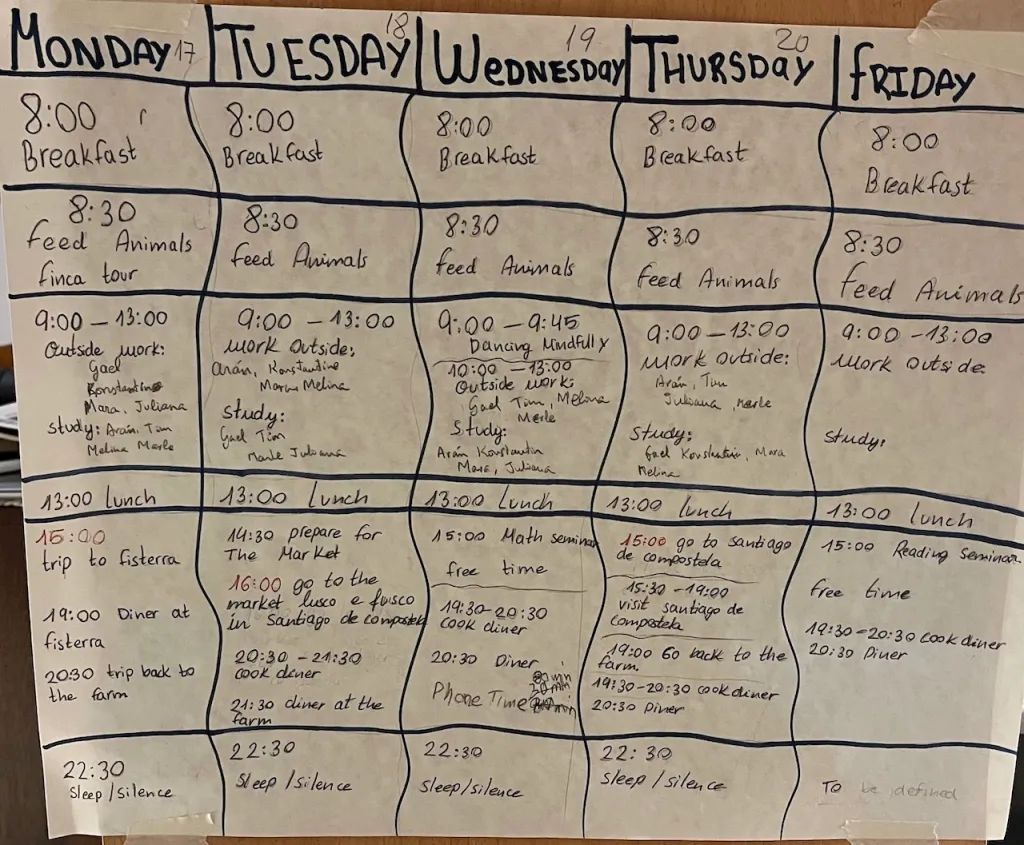 MONDAY 17
TUESDAY 18
WEDNESDAY 19
THURSDAY 20
FRIDAY
8:00
Breakfast
8:00
Breakfast
8:00
Breakfast
8:00
Breakfast
8:00
Breakfast
8:30
Feed Animals
finca tour
8:30
Feed Animals
8:30
Feed Animals
8:30
Feed Animals
8:30
Feed Animals
9:00 – 13:00
Outside work:
Gael
Konstantin
Mara, Juliana
Study: Arán, Tim
Melina Merle
9:00 – 13:00
Work Outside:
Arán, Konstantine
Mara Melina
Study:
Gael Tim
Merle Juliana
9:00 – 9:45
Dancing Mindfully
10:00 – 13:00
Outside work:
Gael Tim, Melina
Merle
Study:
Arán Konstantin
Mara, Juliana
9:00 – 13:00
Work Outside:
Arán, Tim
Juliana, Merle
Study:
Gael Konstantin, Mara
Melina
9:00 – 13:00
Work Outside:
Study:
13:00 Lunch
13:00 Lunch
13:00 Lunch
13:00 Lunch
13:00 Lunch
15:00
trip to fisterra
19:00 Diner at
fisterra
20:30 trip back to
the farm
14:30 prepare for
The Market
16:00 go to the
market lusco e fusco
in Santiago de compostela
20:30 – 21:30
cook diner
21:30 diner at the
farm
15:00 Math seminar
free time
19:30–20:30
cook diner
20:30 Diner
Phone Time 30 min
15:00 go to santiago
de compostela
15:30 – 19:00
visit santiago de
compostela
19:00 Go back to the
farm.
19:30–20:30 cook diner
20:30 Diner
15:00 Reading seminar
free time
19:30–20:30 cook diner
20:30 Diner
22:30
Sleep/silence
22:30
Sleep/silence
22:30
Sleep/silence
22:30
Sleep/silence
To be defined